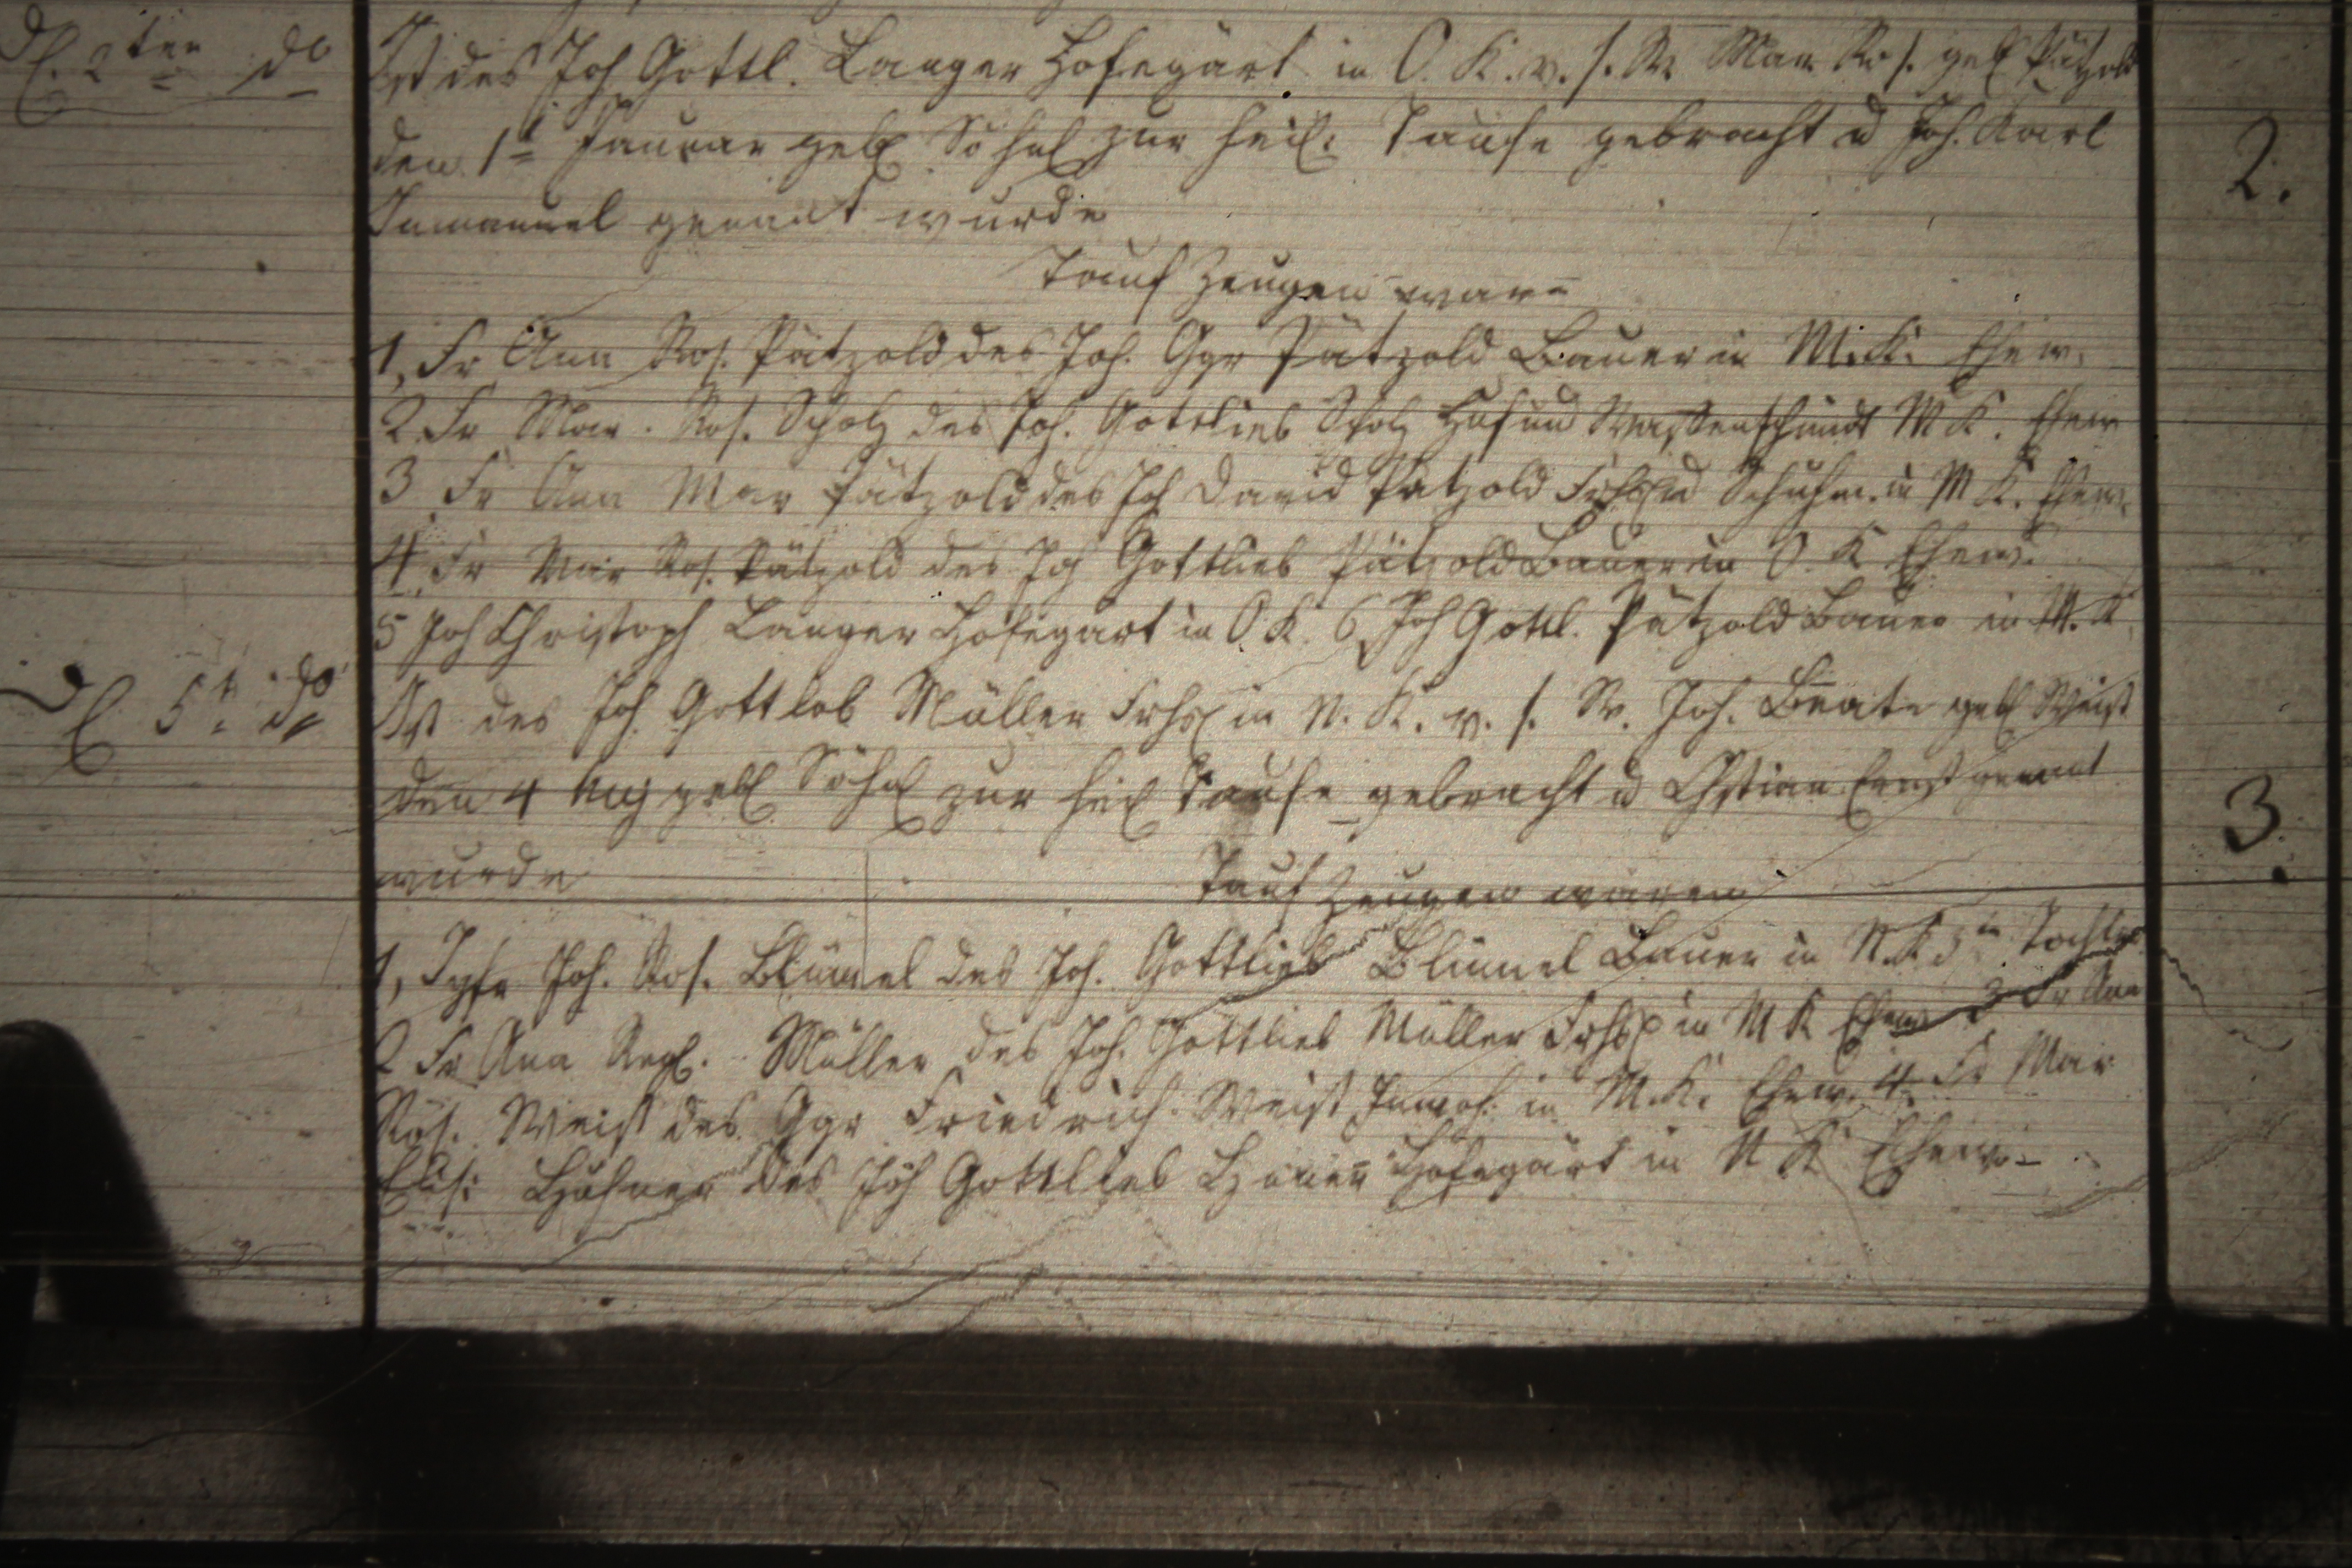 d. 2ten do
Ist des Joh Gottl. Langer Hofegärt in O. K. v. s. W. Mar. Ros. geb Pätzold
den 1t Januar geb Söhnl zur heil: Taufe gebracht u Joh. Karl
Immanuel genant wurde
2.
Tauf Zeugen ware
1, Fr Ann Ros. Pätzold des Joh. Ggr Pätzold Bauer in M. K. Ehew.
2 Fr Mar. Ros. Scholz des Joh. Gottlieb Scholz Huf und Waffenschmidt M K. Ehew
3 Fr Ann Mar Pätzold des Joh David Patzold Frhsl u Schuhm. in M K. Ehew.
4. Fr Mar Ros. Pätzold des Joh Gottlieb Pätzold Bauer in O. K Ehew.
5 Joh Christoph Langer Hofegärt in O K. 6, Joh Gottl. Pätzold Bauer in M. K.
d 5t do
Ist des Joh Gottlob Müller Frhsl in N. K. v. s. W. Joh. Beate geb Weist
den 4 geb Söhnl zur heil Taufe gebracht u Chstian Ernst genant
wurde Tauf Zeugen waren
3.
1, Jgfr Joh. Ros. Blümel des Joh. Gottlieb Blümel Bauer in N. K. Tochter
2 Fr Ann Müller des Joh. Gottlieb Müller Frhsl in M K Ehew 3 Fr Ann
Ros. Weist des Ggr Friedrich Weist Inwoh. in M. K. Ehew. 4. Fr Mar
Elis: des Joh Gottlieb Hofegärt in N K Ehew.